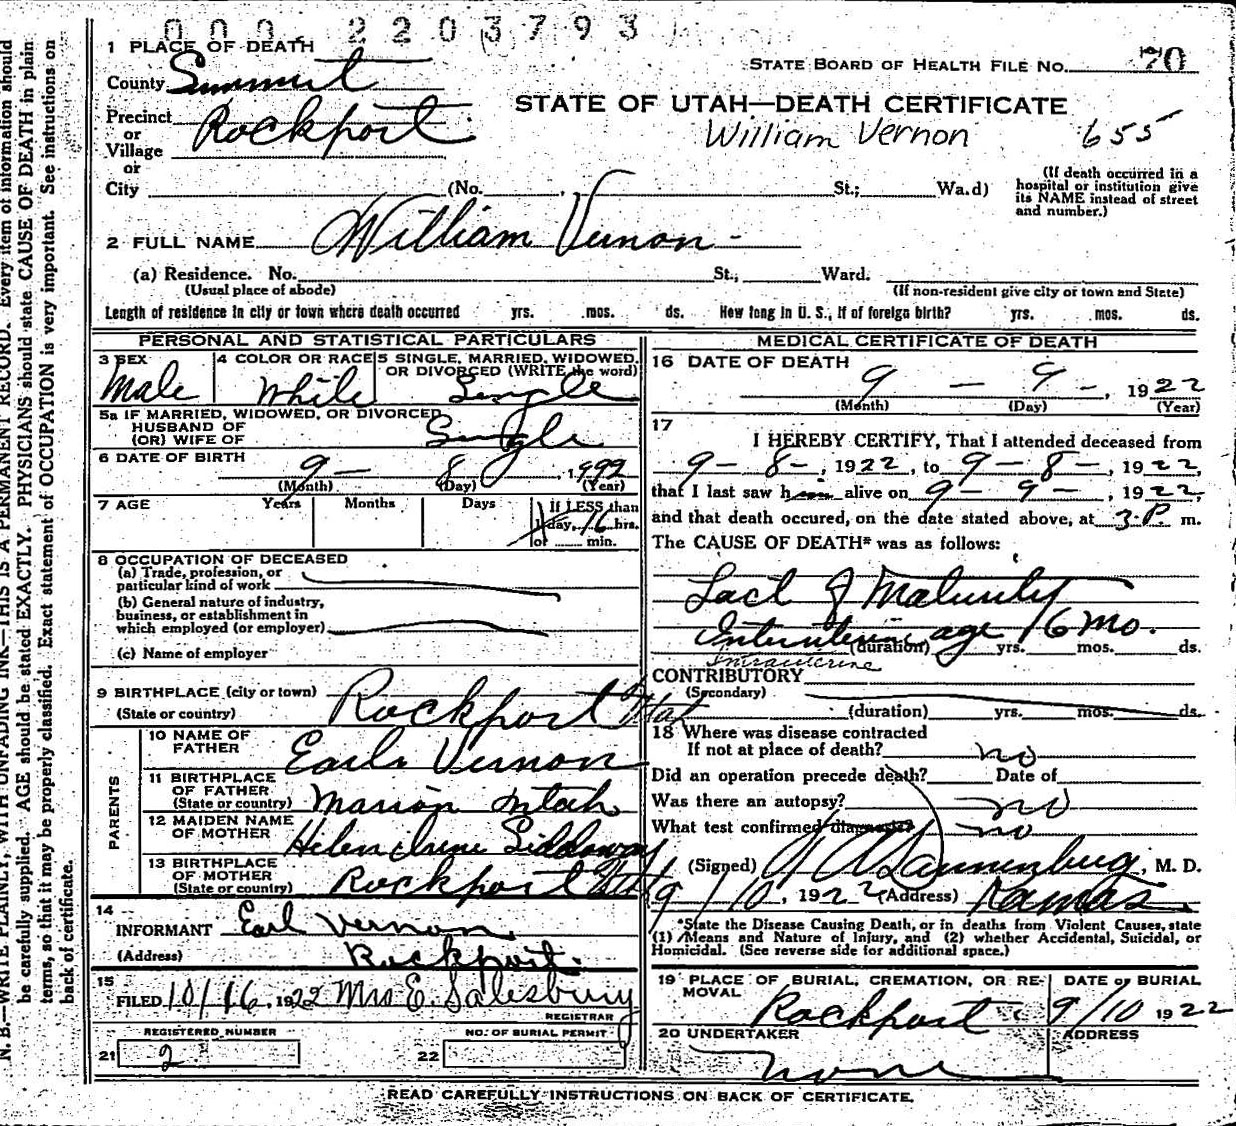 0 0 0 2 2 0 3 7 9 3
1 PLACE OF DEATH
STATE BOARD OF HEALTH FILE NO. 70
County Summit
STATE OF UTAH—DEATH CERTIFICATE
Precinct
or
Village
Rockport
William Vernon 655
or
City (No. , St.; Wa.d)
(If death occurred in a
hospital or institution give
its NAME instead of street
and number.)
2 FULL NAME William Vernon -
(a) Residence. No. St., Ward.
(Usual place of abode) (If non-resident give city or town and State)
Length of residence in city or town where death occurred yrs. mos. ds. How long in U. S., if of foreign birth? yrs. mos. ds.
PERSONAL AND STATISTICAL PARTICULARS
3 SEX 4 COLOR OR RACE 5 SINGLE, MARRIED, WIDOWED,
OR DIVORCED (WRITE the word)
Male White Single
5a IF MARRIED, WIDOWED, OR DIVORCED
HUSBAND OF
(OR) WIFE OF Single
6 DATE OF BIRTH
9 — 8 , 1922
(Month) (Day) (Year)
7 AGE Years Months Days If LESS than
1 day, 16 hrs.
or min.
8 OCCUPATION OF DECEASED
(a) Trade, profession, or
particular kind of work
(b) General nature of industry,
business, or establishment in
which employed (or employer)
(c) Name of employer
9 BIRTHPLACE (city or town)
(State or country) Rockport Utah
PARENTS
10 NAME OF
FATHER Earl Vernon
11 BIRTHPLACE
OF FATHER
(State or country) Marion Utah
12 MAIDEN NAME
OF MOTHER Helen Irene Siddoway
13 BIRTHPLACE
OF MOTHER
(State or country) Rockport Utah
14
INFORMANT Earl Vernon
(Address) Rockport.
15
FILED 10/16, 1922 Mrs E. Salesbury
REGISTRAR
REGISTERED NUMBER NO. OF BURIAL PERMIT
21 2 22
MEDICAL CERTIFICATE OF DEATH
16 DATE OF DEATH
9 — 9 — , 1922
(Month) (Day) (Year)
17
I HEREBY CERTIFY, That I attended deceased from
9 - 8 - , 1922, to 9 - 8 - , 1922,
that I last saw him alive on 9 - 9 - , 1922,
and that death occured, on the date stated above, at 3.P. m.
The CAUSE OF DEATH* was as follows:
Lack of Maturity
Interuterine age 6 mo.
(duration) yrs. mos. ds.
Intrauterine
CONTRIBUTORY
(Secondary)
(duration) yrs. mos. ds.
18 Where was disease contracted
If not at place of death? no
Did an operation precede death? Date of
Was there an autopsy? no
What test confirmed diagnosis? no
(Signed) , M. D.
9/10, 1922 (Address) Kamas.
*State the Disease Causing Death, or in deaths from Violent Causes, state
(1) Means and Nature of Injury, and (2) whether Accidental, Suicidal, or
Homicidal. (See reverse side for additional space.)
19 PLACE OF BURIAL, CREMATION, OR RE-
MOVAL
DATE of BURIAL
Rockport 9/10 1922
20 UNDERTAKER ADDRESS
none
READ CAREFULLY INSTRUCTIONS ON BACK OF CERTIFICATE.
N. B.—WRITE PLAINLY, WITH UNFADING INK—THIS IS A PERMANENT RECORD. Every item of information should
be carefully supplied. AGE should be stated EXACTLY. PHYSICIANS should state CAUSE OF DEATH in plain
terms, so that it may be properly classified. Exact statement of OCCUPATION is very important. See instructions on
back of certificate.